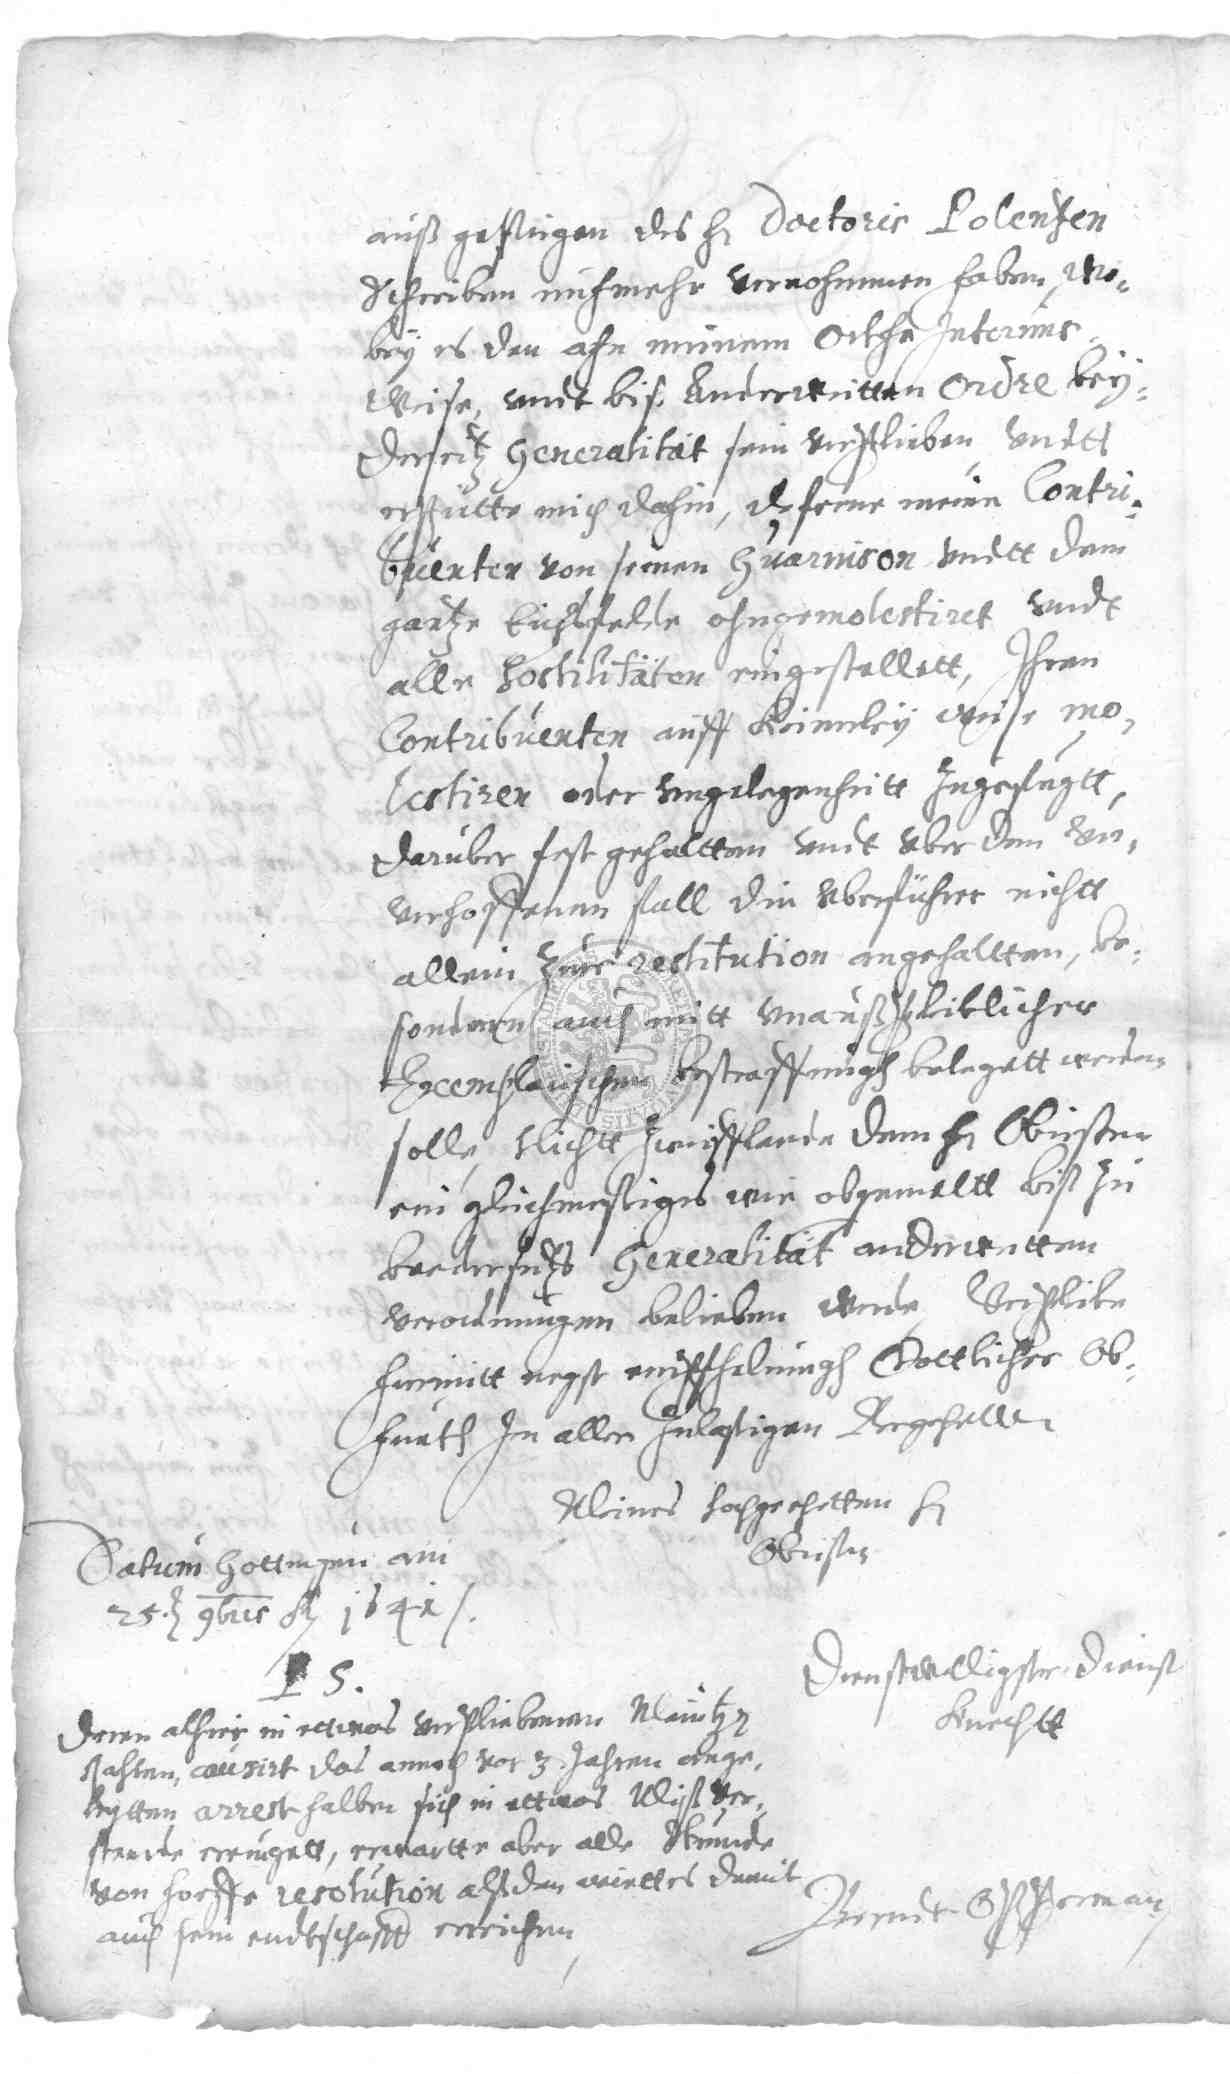 auß gestrigen des H. Doctoris Polentzen
Schreiben nuhmehr vernohmmen haben, wo-
bey es den ahn meinem Orthe Interims-
weise, undt biß Anderweitten Ordre bey-
derseitz Generalität sein verpleiben undtt
mich dahin, dz ferne meine Contri-
buenten von seinen Guarnison undtt dem
gantze Eichsfelde ohngemolestiret undt
alle hostilitäten eingestellett, Ihren
Contribuenten auff Keinerley weise mo-
lestiren oder ungelegenheitt Zugefugtt,
darüber fest gehaltten undt uber den Un-
verhofften fall die uberführer nichtt
allein Zur restitution angehaltten, be-
sondern auch mitt unaußpleiblicher
Exemplarischen bestraffungh belegett werden
solle, Nichtt Zweifflende dem H. Obristen
ein gleichmeßiges wie obgemeltt biß zu
beederseitz Generalität anderweitten
verordnungen belieben werde, Verpleibe
hiermitt negst entpfhelungh Gottlicher Ob-
hueth In allen Zuläßigen
Meines hochgeehrtten H.
Obristen
Datum Gottingen am
25. 9bris Ao 1641 /.
Dienstwilligster Dienst
Knechtt
P S.
Deren alhier in ettwas verpliebenen Maintz.
sachen, causirt das annoch vor 3. Jahren ange-
legtten arrest halben sich in ettwas Mißver-
stende ereugett, erwartte aber alle Stunde
von hoeffe resolution alßdan wirtt es damit
auch sein endtschafft erreichen
Berndt